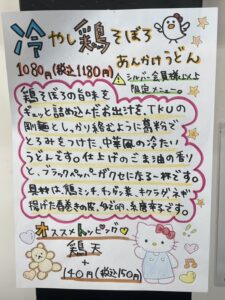 冷やし鶏そぼろ
あんかけうどん
1080円(税込1180円)
シルバー会員様以上
限定メニュー。
鶏そぼろの旨味を
ギュッと詰め込んだお出汁を、TKUの
剛麺としっかり絡むように葛粉で
とろみをつけた、中華風の冷たい
うどんです。仕上げのごま油の香り
と、ブラックペッパーがクセになる一杯です。
具材は、鶏ミンチ、わかめ、葱、キクラゲ、ネギ
揚げた春巻きの皮、糸唐辛子です。
オススメトッピング
鶏天
+
140円(税込150円)